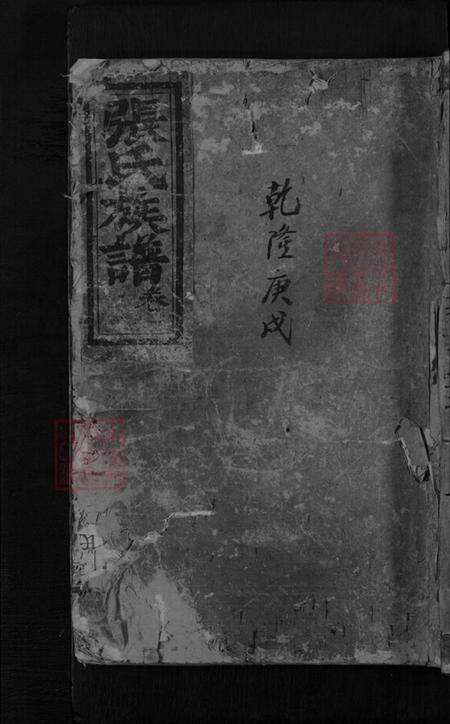 乾隆庚戌
張氏族譜
卷